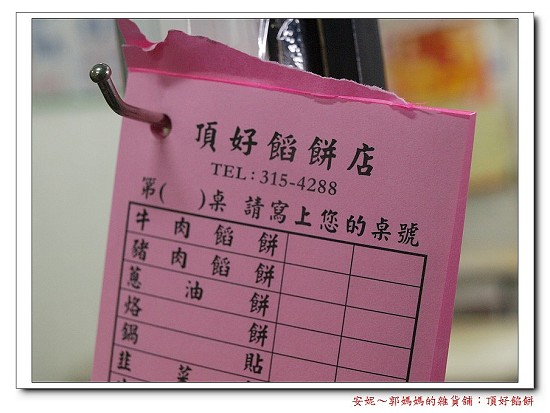 頂好餡餅店
TEL:315-4288
第(　)桌 請寫上您的桌號
牛肉餡餅
豬肉餡餅
蔥油餅
烙餅
鍋貼
韭菜
安妮～郭媽媽的雜貨舖：頂好餡餅